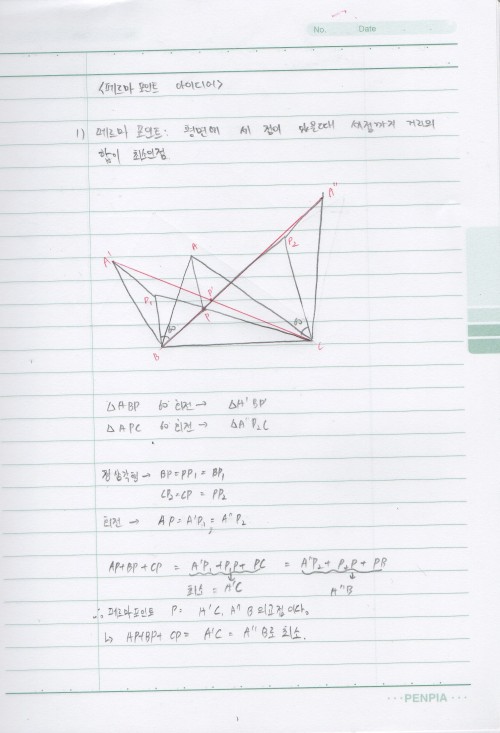 No. Date
<페르마 포인트 아이디어>
1) 페르마 포인트: 평면에 세 점이 있을때 세점까지 거리의
합이 최소인점
A''
P2
A
A'
P1
P'
P
60
60
B
C
△ABP 60° 회전 → △A'BP'
△APC 60° 회전 → △A''P2C
정삼각형 → BP=PP1=BP1
CP2=CP=PP2
회전 → AP=A'P1=A''P2
AP+BP+CP = A'P1+P1P+PC = A''P2+P2P+PB
최소=A'C A''B
∴ 페르마포인트 P= A'C, A''B 의교점이다.
↳ AP+BP+CP= A'C = A''B로 최소.
PENPIA
1